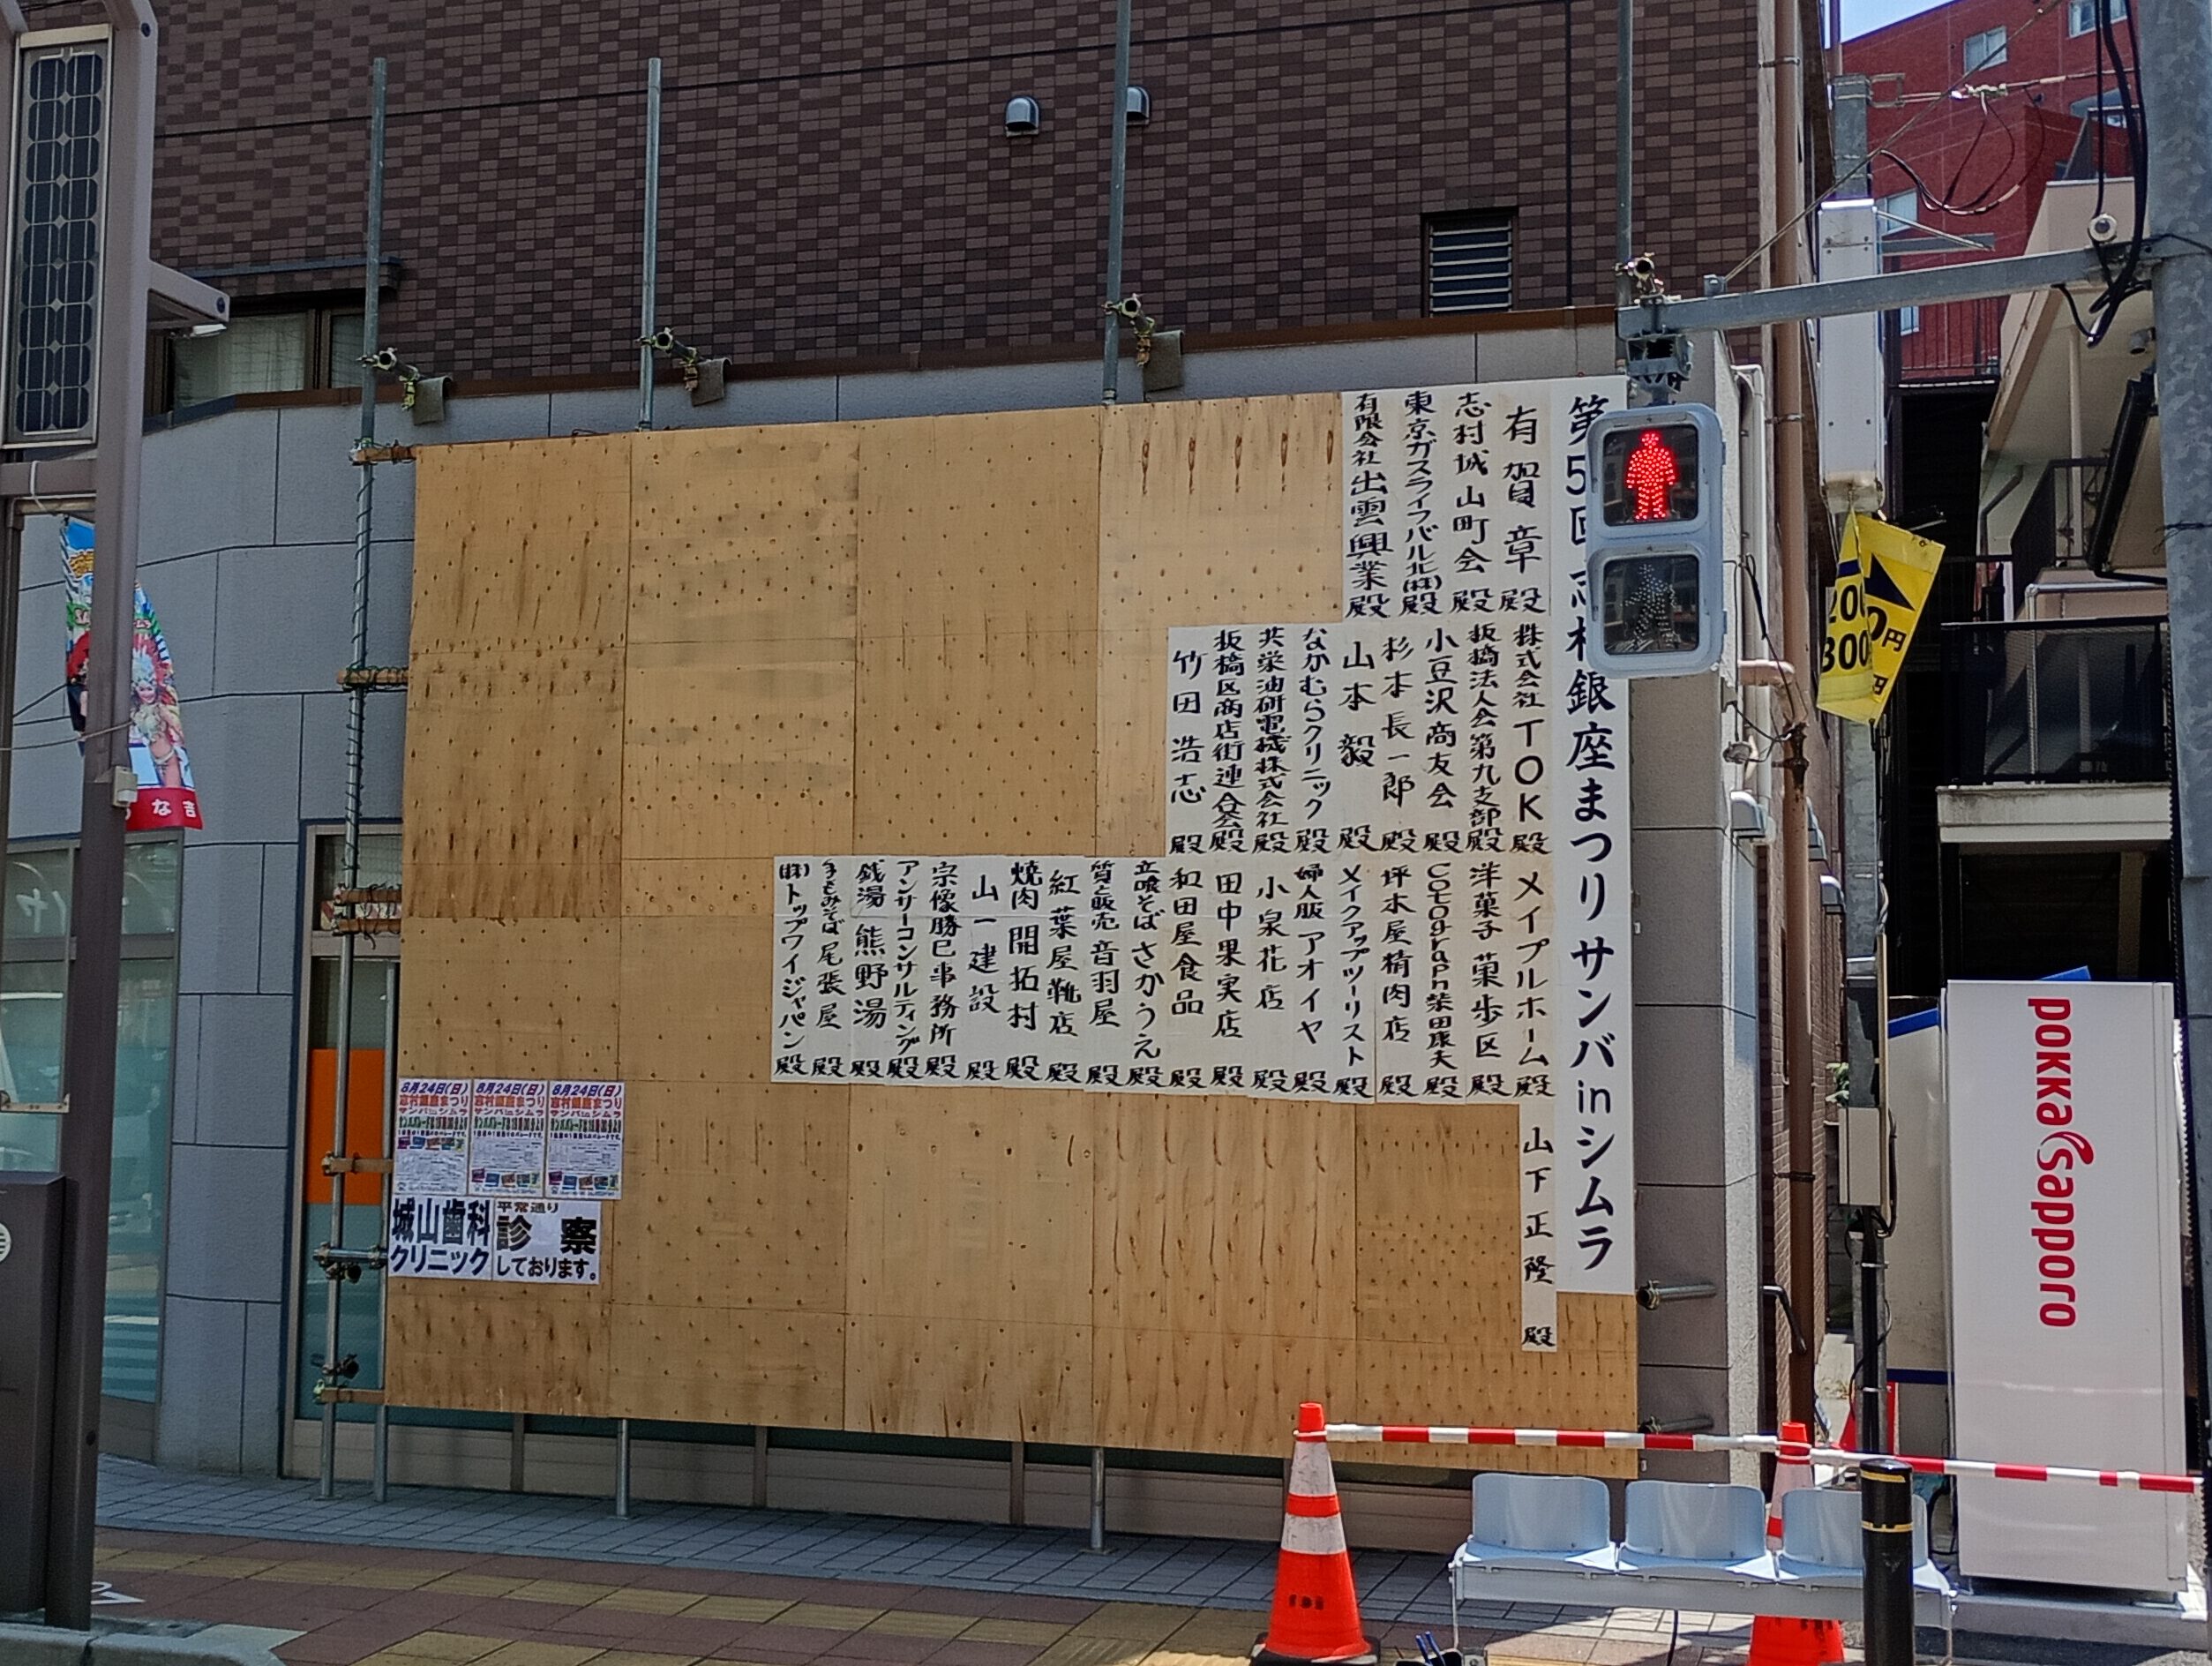 有賀章殿
志村城山町会殿
東京ガスライフバル北(株)殿
有限会社出雲興業殿
銀座まつりサンバinシムラ
株式会社TOK殿
板橋法人会第九支部殿
小豆沢商友会殿
杉本長一郎殿
山本毅殿
なかむらクリニック殿
共栄油研電機株式会社殿
板橋区商店街連合会殿
竹田浩志殿
メイプルホーム殿
洋菓子菓歩区殿
Cotograph柴田康夫殿
坪木屋精肉店殿
メイクアップツーリスト殿
婦人服アオイヤ殿
小泉花店殿
田中果実店殿
和田屋食品殿
立喰そばさかうえ殿
質と販売音羽屋殿
紅葉屋靴店殿
焼肉開拓村殿
山一建設殿
宗像勝巳事務所殿
アンサーコンサルティング殿
銭湯熊野湯殿
手もみそば尾張屋殿
(株)トップワイジャパン殿
山下正隆殿
8月24日(日)
志村銀座まつり
サンバinシムラ
8月24日(日)
志村銀座まつり
サンバinシムラ
8月24日(日)
志村銀座まつり
サンバinシムラ
城山歯科
クリニック
平常通り
診察
しております。
pokka sapporo
200
300
円